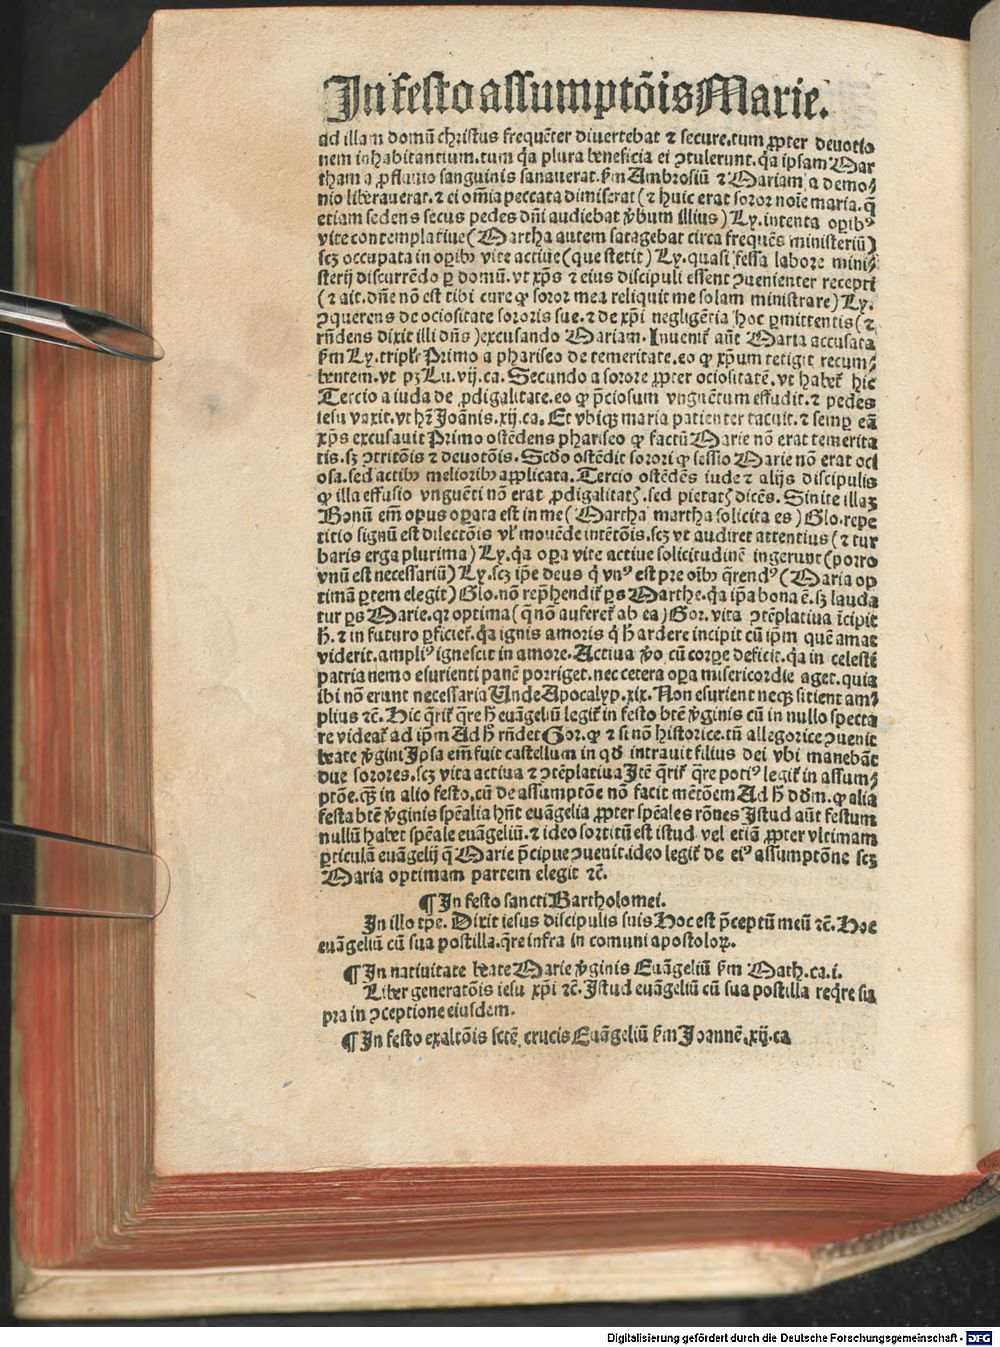 In festo assumptõis Marie.
ad illam domũ christus frequẽter diuertebat ⁊ secure.tum ꝓpter deuotio
nem inhabitantium.tum q̃a plura beneficia ei ↄtulerunt.q̃a ipsam Mar
tham a ꝓfluuio sanguinis sanauerat.ẜm Ambrosiũ ⁊ Mariam a demo⸗
nio liberauerat.⁊ ei om̃ia peccata dimiserat (⁊ huic erat soror noĩe maria.q̃
etiam sedens secus pedes dñi audiebat v̓bum illius) Ly.intenta oꝑibꝰ
vite contemplatiue (Martha autem satagebat circa frequẽs ministeriũ)
scꝫ occupata in oꝑibꝫ vite actiue (que stetit) Ly.quasi fessa labore mini⸗
sterij discurrẽdo ꝑ domũ.vt xp̃s ⁊ eius discipuli essent ↄuenienter recepti
(⁊ ait.dñe nõ est tibi cure ꝙ soror mea reliquit me solam ministrare) Ly.
ↄquerens de ociositate sororis sue.⁊ de xp̃i negligẽtia hoc ꝑmittentis (⁊
rñdens dixit illi dñs) excusando Mariam. Inuenit᷑ aũt Maria accusata
ẜm Ly.tripl᷑r Primo a phariseo de temeritate.eo ꝙ xp̃um tetigit recum⸗
bentem.vt pꝫ Lu.vij.ca. Secundo a sorore ꝓpter ociositatẽ.vt habet᷑ hic
Tercio a iuda de ꝓdigalitate.eo ꝙ p̃ciosum vnguẽtum effudit.⁊ pedes
iesu vnxit.vt hꝫ Joãnis.xij.ca. Et vbiqꝫ maria patienter tacuit.⁊ semꝑ eã
xp̃s excusauit Primo ostẽdens phariseo ꝙ factũ Marie nõ erat temerita
tis.sꝫ ↄtritõis ⁊ deuotõis. Scdo ostẽdit sorori ꝙ sessio Marie nõ erat oci
osa.sed actibꝫ melioribꝫ applicata. Tercio ostẽdẽs iude ⁊ alijs discipulis
ꝙ illa effusio vnguẽti nõ erat ꝓdigalitatꝭ.sed pietatꝭ dicẽs. Sinite illaꝫ
Bonũ em̃ opus oꝑata est in me (Martha martha solicita es) Glo.repe
titio signũ est dilectõis vl᷑ mouẽde intẽtõis.scꝫ vt audiret attentius (⁊ tur
baris erga plurima) Ly.q̃a oꝑa vite actiue solicitudinẽ ingerunt (porro
vnũ est necessariũ) Ly.scꝫ ip̃e deus q̓ vnꝰ est pre oĩbꝫ q̃rendꝰ (Maria op
timã ꝑtem elegit) Glo.nõ rep̃hendit᷑ ꝑs Marthe.q̃a ip̃a bona ẽ.sꝫ lauda
tur ꝑs Marie.qꝛ optima (q̃ nõ auferet᷑ ab ea) Gor.vita ↄtẽplatiua ĩcipit
h̓.⁊ in futuro ꝑficiet᷑.q̃a ignis amoris q̓ h̓ ardere incipit cũ ip̃m quẽ amat
viderit.ampliꝰ ignescit in amore. Actiua v̓o cũ corꝑe deficit.q̃a in celesti
patria nemo esurienti panẽ porriget.nec cetera oꝑa misericordie aget.quia
ibi nõ erunt necessaria Unde Apocalyp.xix. Non esurient neqꝫ sitient am⸗
plius ⁊c. Hic q̃rit᷑ q̃re h̓ euãgeliũ legit᷑ in festo btẽ v̓ginis cũ in nullo specta
re videat᷑ ad ip̃m Ad h̓ rñdet Gor.ꝙ ⁊ si nõ historice.tñ allegorice ↄuenit
beate v̓gini Ipsa em̃ fuit castellum in qđ intrauit filius dei vbi manebãt
due sorores.scꝫ vita actiua ⁊ ↄtẽplatiua Itẽ q̃rit᷑ q̃re potiꝰ legit᷑ in assum⸗
ptõe.q̃ꝫ in alio festo.cũ de assumptõe nõ facit mẽtõem Ad h̓ đm.ꝙ alia
festa btẽ v̓ginis sp̃ealia hñt euãgelia ꝓpter sp̃eales rões Istud aũt festum
nullũ habet sp̃eale euãgeliũ.⁊ ideo sortitũ est istud vel etiã ꝓpter vltimam
ꝑticulã euãgelij q̃ Marie p̃cipue ↄuenit.ideo legit᷑ de eiꝰ assumptõne scꝫ
Maria optimam partem elegit ⁊c.
¶ In festo sancti Bartholomei.
In illo tp̃e. Dixit iesus discipulis suis Hoc est p̃ceptũ meũ ⁊c. Hoc
euãgeliũ cũ sua postilla.q̃re infra in comuni apostoloꝝ.
¶ In natiuitate beate Marie v̓ginis Euãgeliũ ẜm Math.ca.i.
Liber generatõis iesu xp̃i ⁊c. Istud euãgeliũ cũ sua postilla req̃re su
pra in ↄceptione eiusdem.
¶ In festo exaltõis sctẽ crucis Euãgeliũ ẜm Joannẽ.xij.ca
Digitalisierung gefördert durch die Deutsche Forschungsgemeinschaft - DFG